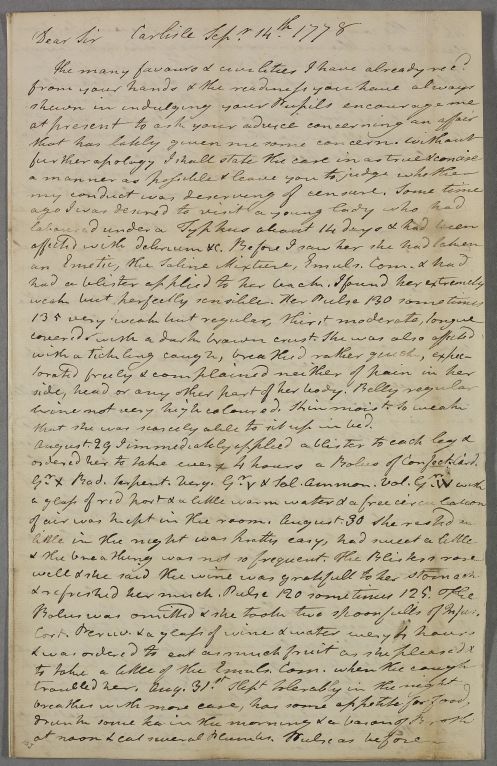 Dear Sir Carlisle Sepr. 14th 1778
The many favours & civilities I have already recd.
from your hands & the readiness you have always
shewn in indulging your Pupils encourage me
at present to ask your advice concerning an affair
that has lately given me some concern. without
further apology I shall state the case in as true & concise
a manner as possible & leave you to judge whether
my conduct was deserving of censure. Some time
ago I was desired to visit a young lady who had
laboured under a Typhus about 14 days & had been
affected with delirium &c. Before I saw her she had taken
an Emetic, the Saline Mixture, Emuls. Com. & had
had a blister applied to her back. I found her extremely
weak but perfectly sensible. Her Pulse 130 sometimes
135 very weak but regular, thirst moderate, tongue
covered with a dark brown crust. She was also affected
with a tickling cough, breathed rather quick, expec-
torated freely & complained neither of pain in her
side, head or any other part of her body. Belly regular
urine not very high coloured. Skin moist. So weak
that she was scarcely able to sit up in bed.
August. 29 I immediately applied a blister to each leg &
ordered her to take every 4 hours a Bolus of Confect. Card.
Gr. X Rad. Serpent. Virg. Gr. V & Sal. Ammon. Vol. Gr. with
a glass of red port & a little warm water & a free circulation
of air was kept in the room. August. 30 She rested
little in the night was pretty easy, had sweet a little
& the breathing was not so frequent. The Blisters rose
well & she said the wine was gratefull to her stomach
& refreshed her much. Pulse 120 sometimes 125. The
Bolus was omitted & she took two spoonfulls of Infus.
Cort. Peruv. & a glass of wine & water every hours
& was ordered to eat as much fruit as she pleased &
to take a little of the Emuls. Com. when the cough
troubled her. Aug. 31st Slept tolerably in the night
breathes with more ease, has some appetite for food,
drank some tea in the morning & a bason of Broth
at noon & eat several Plumbs. Pulse as before